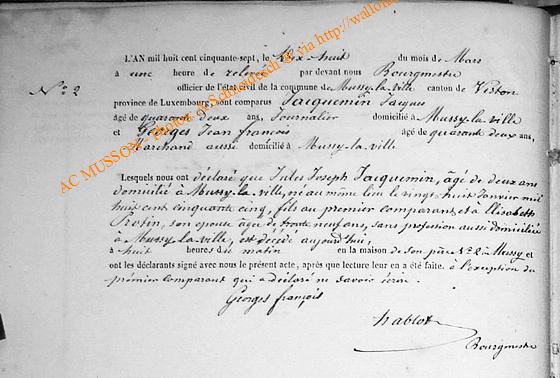 L'AN mil huit cent cinquante-sept, le dix-huit du mois de Mars
à une heure de relevée par devant nous Bourgmestre
N.º 2
officier de l'état civil de la commune de Mussy-la-ville canton de Virton
province de Luxembourg, sont comparus Jacquemin Jacques
âgé de quarante deux ans, Journalier domicilié à Mussy-la-ville
et Georges Jean françois âgé de quarante deux ans,
Marchand aussi domicilié à Mussy-la-ville
Lesquels nous ont déclaré que Jules Joseph Jacquemin, âgé de deux ans
domicilié à Mussy-la-ville, né au même lieu le vingt-huit Janvier mil
huit cent cinquante cinq, fils au premier comparant, et à Elisabeth
son épouse âgée de trente neuf ans, sans profession aussi domiciliée
à Mussy-la-ville, est décédé aujourd'hui,
à huit heures du matin en la maison de son père Nº 2 à Mussy et
ont les déclarants signé avec nous le présent acte, après que lecture leur en a été faite. à l'exception du
premier comparant qui a déclaré ne savoir écrire.
Georges françois
hablot
Bourgmestre
AC MUSSON - Photos © Schneidesch @ via http://wallonia